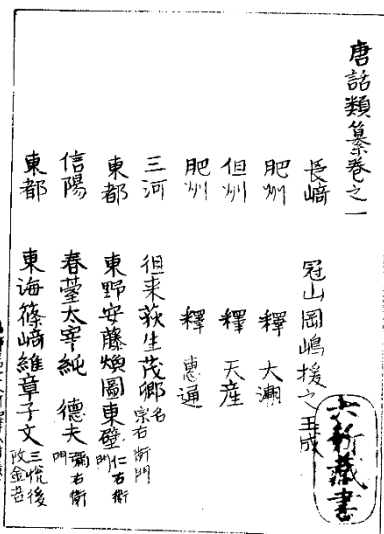 唐話類纂卷之一
長﨑 冠山岡嶋援之玉成
肥州 釋 大潮
但州 釋 天産
肥州 釋 惠通
三河 徂来荻生茂卿 名宗右衛門
東都 東野安藤煥圖東壁 仁右衛門
信陽 春臺太宰純 德夫 彌右衛門
東都 東海篠﨑維章子文 三悦後改金吾
藏書